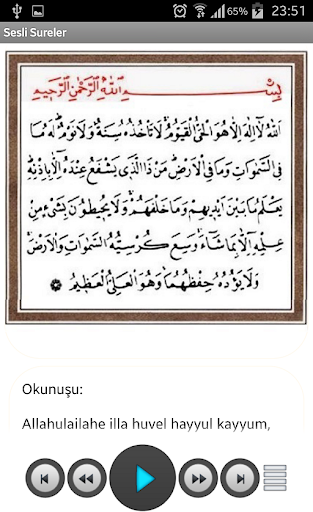 65% 23:51
Sesli Sureler
بِسْــــمِ اللّٰهِ الرَّحْمٰنِ الرَّحٖيمِ
اَللّٰهُ لَٓا اِلٰهَ اِلَّا هُوَ الْحَىُّ الْقَيُّومُ لَا تَاْخُذُهُ سِنَةٌ وَلَا نَوْمٌ لَهُ مَا
فِى السَّمٰوَاتِ وَمَا فِى الْاَرْضِ مَنْ ذَا الَّذٖى يَشْفَعُ عِنْدَهُٓ اِلَّا بِاِذْنِهٖ
يَعْلَمُ مَا بَيْنَ اَيْدٖيهِمْ وَمَا خَلْفَهُمْ وَلَا يُحٖيطُونَ بِشَیْءٍ مِنْ
عِلْمِهٖٓ اِلَّا بِمَا شَٓاءَ وَسِعَ كُرْسِيُّهُ السَّمٰوَاتِ وَالْاَرْضَ
وَلَا يَؤُدُهُ حِفْظُهُمَا وَهُوَ الْعَلِىُّ الْعَظٖيمُ
Okunuşu:
Allahulailahe illa huvel hayyul kayyum,